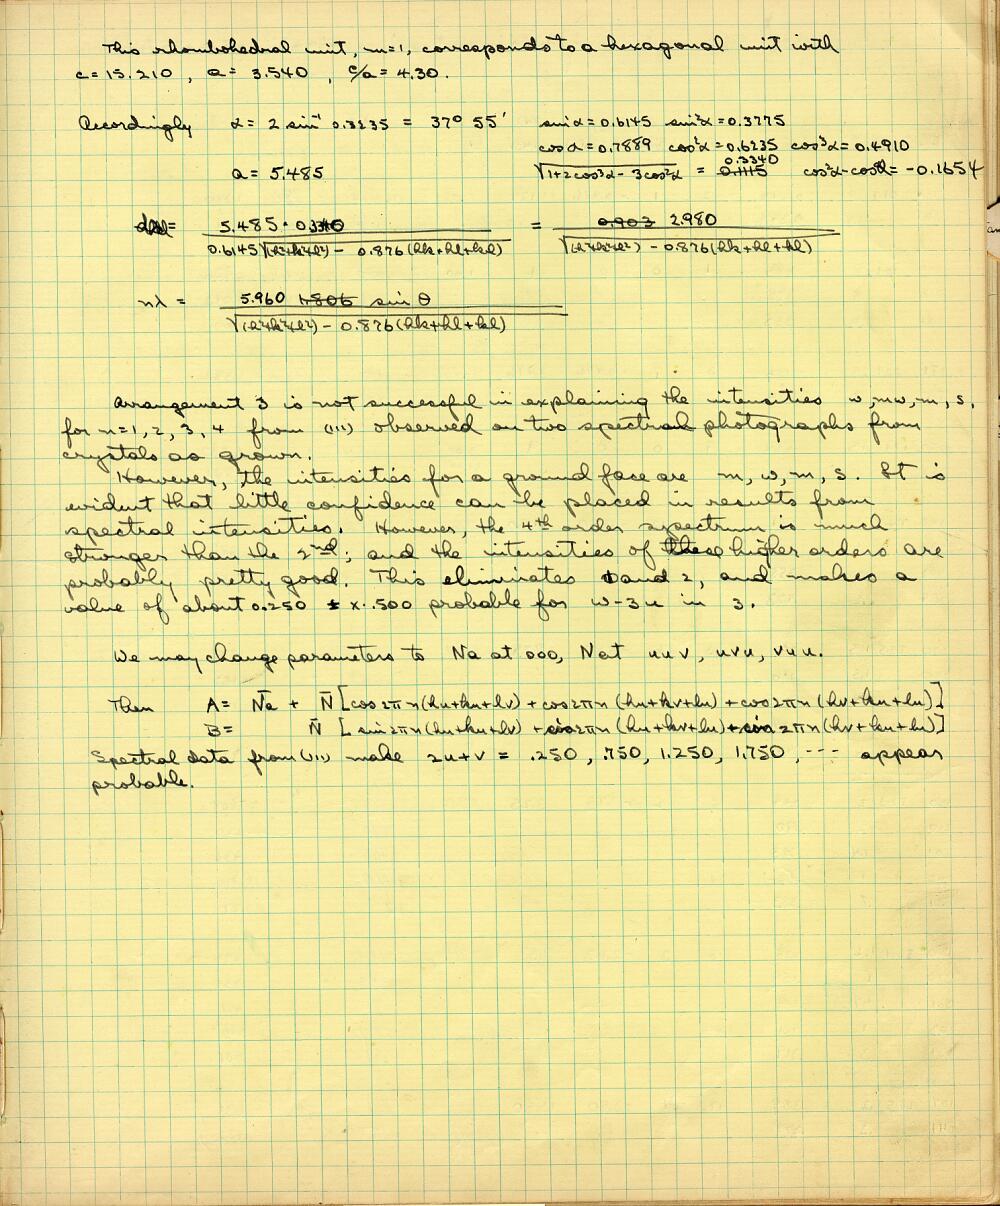 This rhombohedral unit, m=1, corresponds to a hexagonal unit with
c = 15.210 , a = 3.540 , c/a = 4.30.
Accordingly α = 2 sin⁻¹ 0.3235 = 37° 55′ sin α = 0.6145 sin²α = 0.3775
cos α = 0.7889 cos²α = 0.6235 cos³α = 0.4910
a = 5.485 √1+2cos³α - 3cos²α = 0.1115 0.3340 cos²α - cosα = -0.1654
dhkl = 5.485 · 0.3340 / 0.6145 √(h²+k²+l²) - 0.876 (hk+hl+kl) = 0.903 2.980 / √(h²+k²+l²) - 0.876 (hk+hl+kl)
nλ = 5.960 1.806 sin θ / √(h²+k²+l²) - 0.876 (hk+hl+kl)
Arrangement 3 is not successful in explaining the intensities w, mw, m, s,
for n=1, 2, 3, 4 from (111) observed on two spectral photographs from
crystals as grown.
However, the intensities for a ground face are m, w, m, s. It is
evident that little confidence can be placed in results from
spectral intensities. However, the 4th order spectrum is much
stronger than the 2nd; and the intensities of these higher orders are
probably pretty good. This eliminates 1 and 2, and makes a
value of about 0.250 ± x·.500 probable for w-3u in 3.
We may change parameters to Na at 000, N at uuv, uvu, vuu.
Then A = N̄a + N̄ [cos 2πn (hu+ku+lv) + cos 2πn (hu+kv+lu) + cos 2πn (hv+ku+lu)]
B = N̄ [sin 2πn (hu+ku+lv) + sin 2πn (hu+kv+lu) + sin 2πn (hv+ku+lu)]
Spectral data from (111) make 2u+v = .250, .750, 1.250, 1.750, --- appear
probable.